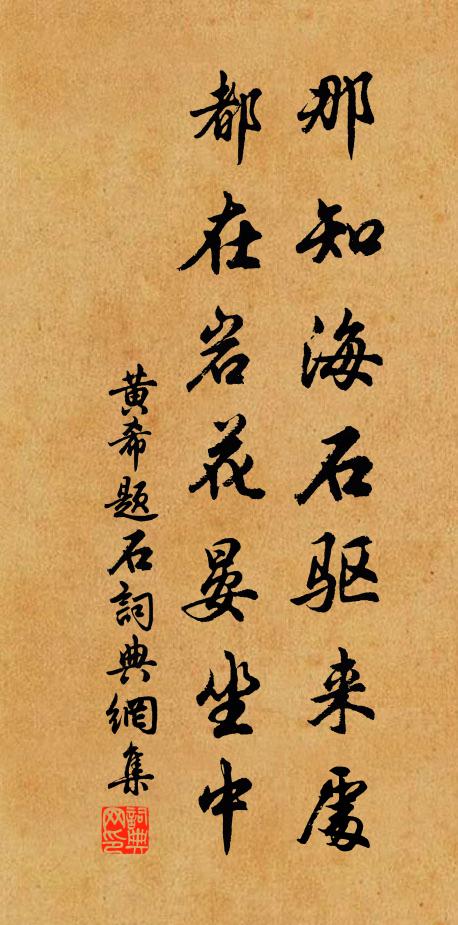 那知海石驱来處
都在岩花晏坐中
黄希题石詞典網集
詞典
网印